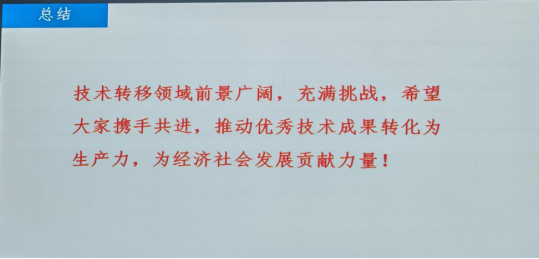 总结
技术转移领域前景广阔，充满挑战，希望
大家携手共进，推动优秀技术成果转化为
生产力，为经济社会发展贡献力量！